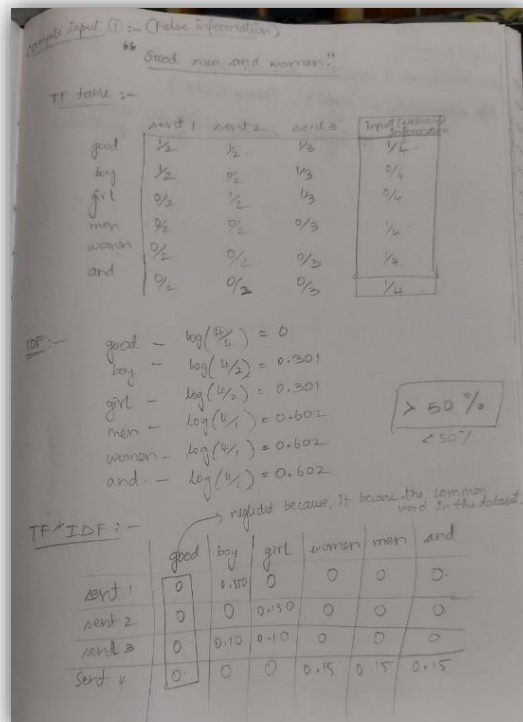 Sample input ① :- (False information)
"Good men and women"
TF table :-
sent 1 sent 2 sent 3 Input (section) Information
good 1/2 1/2 1/3 1/4
boy 1/2 0/2 1/3 0/4
girl 0/2 1/2 1/3 0/4
men 0/2 0/2 0/3 1/4
women 0/2 0/2 0/3 1/4
and 0/2 0/2 0/3 1/4
IDF :-
good - log(4/4) = 0
boy - log(4/2) = 0.301
girl - log(4/2) = 0.301
men - log(4/1) = 0.602
women - log(4/1) = 0.602
and - log(4/1) = 0.602
> 50 %
< 50 %
neglected because, it become the common
word in the dataset
TF*IDF :-
good boy girl women men and
sent 1 0 0.150 0 0 0 0
sent 2 0 0 0.150 0 0 0
sent 3 0 0.10 0.10 0 0 0
Sent 4 0 0 0 0.15 0.15 0.15